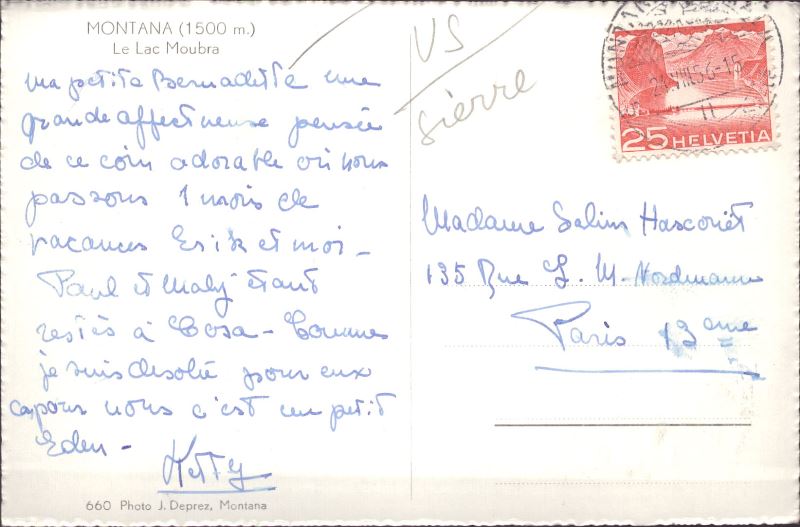 MONTANA (1500 m.)
Le Lac Moubra
Ma petite Bernadette une
grande affectueuse pensée
de ce coin adorable où nous
passons 1 mois de
vacances Erik et moi -
Paul et Maly étant
restés à Cosa -
je suis désolée pour eux
pour nous c'est un petit
Eden -
Ketty
660 Photo J. Deprez, Montana
VS
Sierre
25 HELVETIA
Madame Selim Hascoüet
135 Rue L. M. Nordmann
Paris 13eme